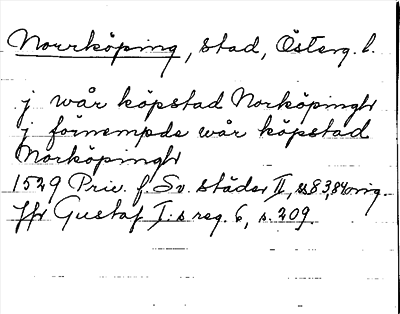 Norrköping, stad, Österg. l.
j wår köpstad Norköpingh
j förnempde wår köpstad
Norköpingh
1529 Priv. f. Sv. städer II, s 83, 84 orig.
Jfr Gustaf I:s reg. 6, s. 209